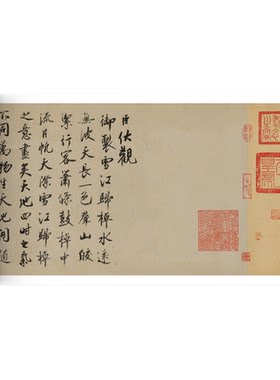 臣伏觀
御製雪江歸棹水遠
無波天長一色羣山皎
潔行客蕭條鼓棹中
流片帆天際雪江歸棹
之意盡矣天地四時之氣
不同萬物生天地間隨